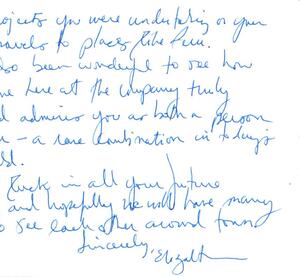 ojects you were undertaking or your
ravels to places like Peru.
lso been wonderful to see how
ne here at the company truly
d admires you as both a person
– a rare combination in today's
ld.
luck in all your future
and hopefully we will have many
o see each other around town
Sincerely, Elizabeth